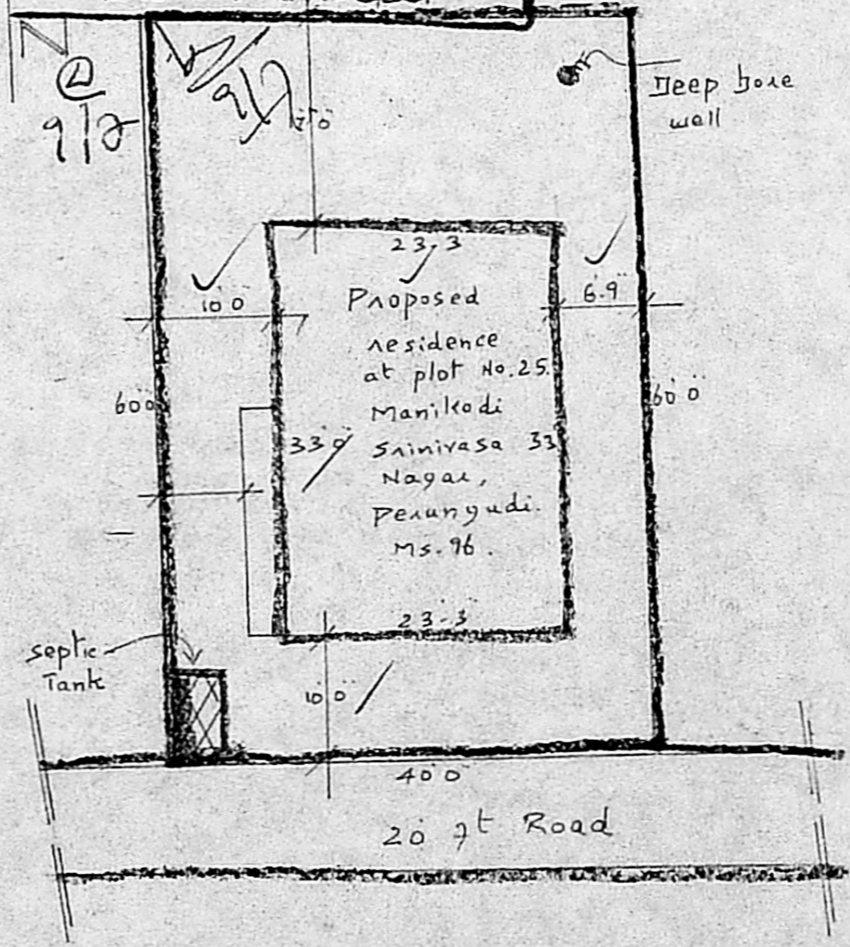 N
9/2
9/2
Deep bore
well
23-3
10 0
6-9
Proposed
residence
at plot No.25.
Manikodi
Srinivasa
Nagar,
Perungudi.
Ms.96.
60 0
60 0
33 0
33
23-3
septic
Tank
10 0
40 0
20 ft Road